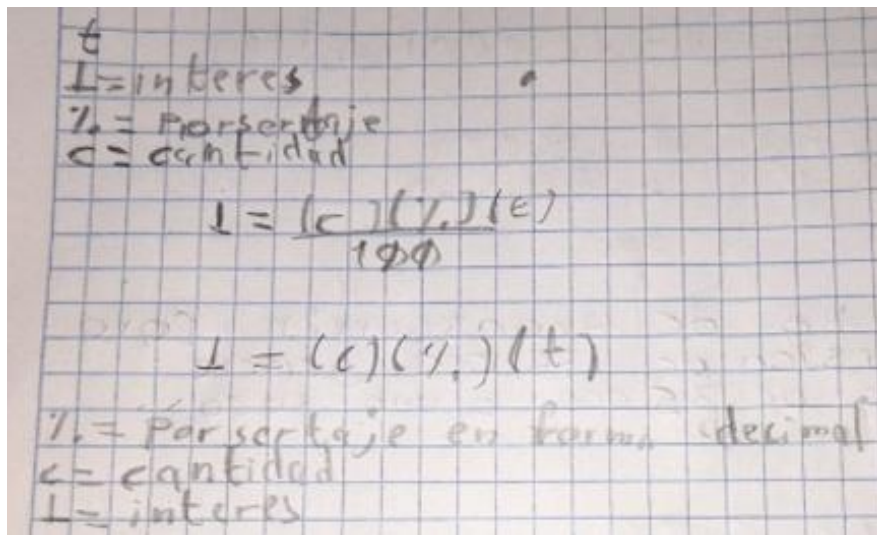 t
I = interes
% = Porsertaje
c = cantidad
I = (c)(%)(t)
100
I = (c)(%)(t)
% = Porsertaje en forma decimal
c = cantidad
I = interes